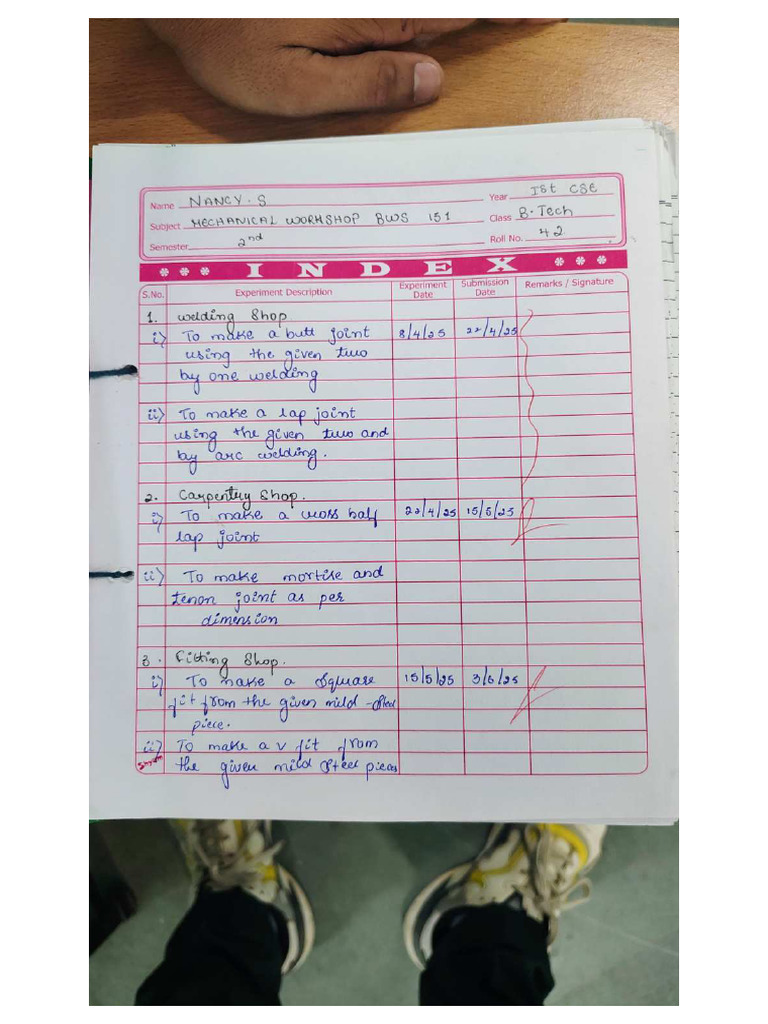 Name NANCY. S Year Ist CSE
Subject MECHANICAL WORKSHOP BWS 151 Class B-Tech
Semester 2nd Roll No. 42
INDEX
S.No. Experiment Description Experiment Date Submission Date Remarks / Signature
1. Welding Shop
i) To make a butt joint 8/4/25 22/4/25
using the given two
by one welding
ii) To make a lap joint
using the given two and
by arc welding.
2. Carpentry Shop.
i) To make a cross half 22/4/25 15/5/25
lap joint
ii) To make mortise and
tenon joint as per
dimension
3. Fitting Shop.
i) To make a Square 15/5/25 3/6/25
fit from the given mild -Steel
piece.
ii) To make a v fit from
the given mild Steel pieces